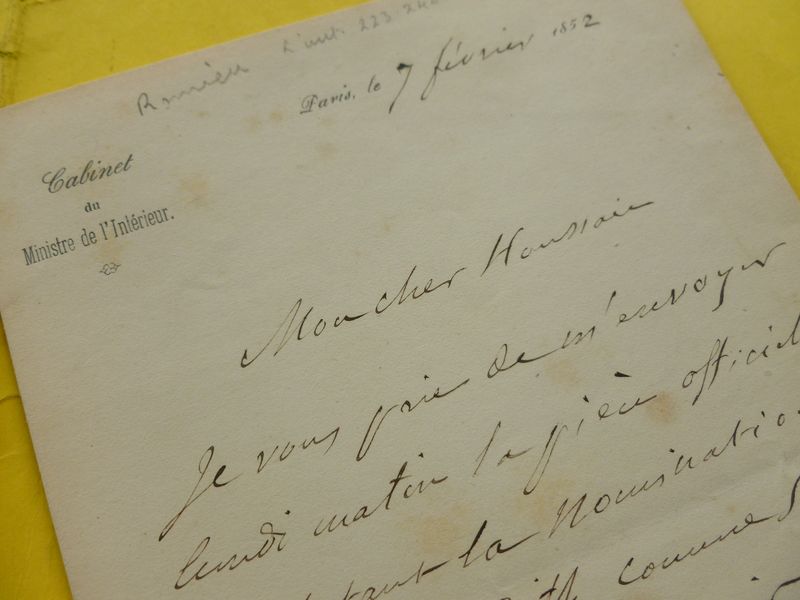 Paris, le 7 février 1852
Cabinet
du
Ministre de l'Intérieur.
Mon cher Houssaie
Je vous prie de m'envoyer
lundi matin la pièce officiel
tant la nomination
comme